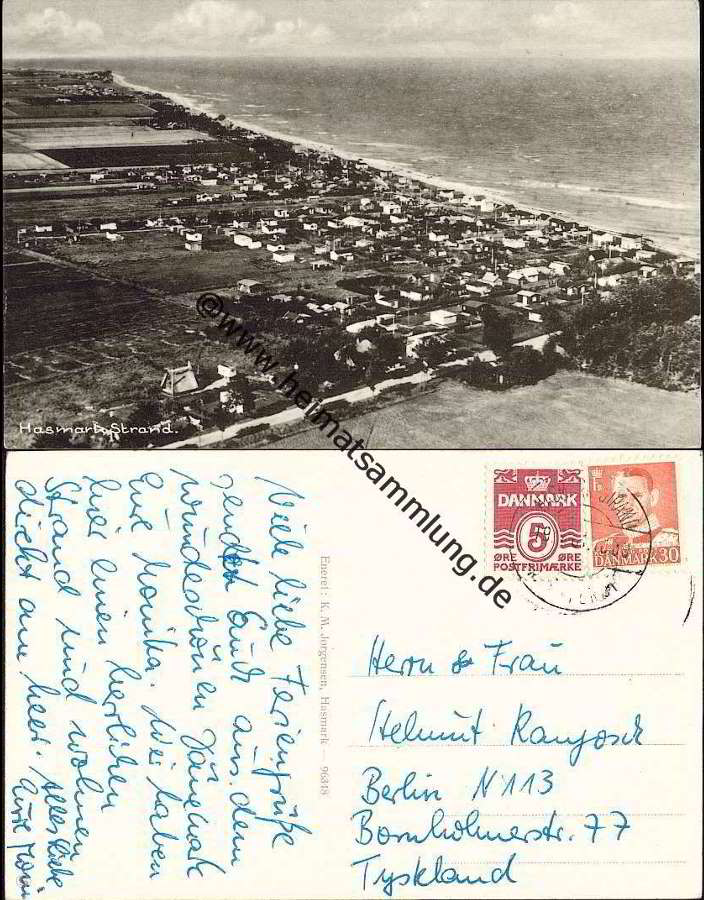 Hasmark Strand.
©www.heimatsammlung.de
Viele liebe Feriengrüße
sendet Euch aus dem
wunderschönen Dänemark
Eure Monika. Wir haben
hier einen herrlichen
Strand und wohnen
direkt am Meer. Alles Liebe
Eure Moni
Eneret: K. M. Jørgensen, Hasmark — 96348
DANMARK
5
ØRE ØRE
POSTFRIMÆRKE
DANMARK 30
Herrn & Frau
Helmut
Berlin N 113
Bornholmerstr. 77
Tyskland